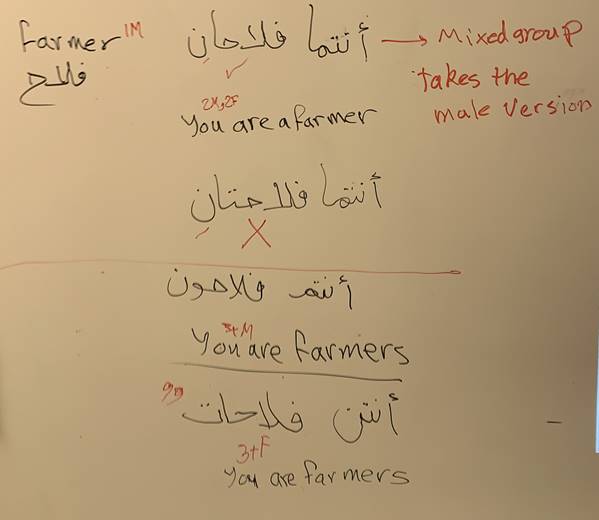 farmer 1M
فلاح
أنتما فلاحانِ → Mixed group
takes the
male version
✓
2M, 2F
You are a farmer
أنتما فلاحتانِ
X
أنتم فلاحون
3+M
You are farmers
أنتن فلاحات
3+F
You are farmers